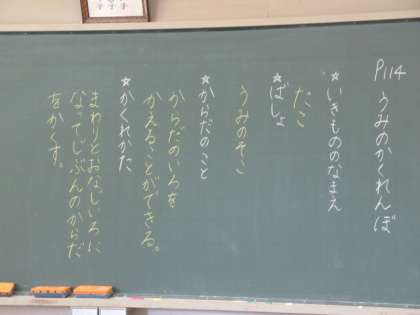 P114
うみのかくれんぼ
☆いきもののなまえ
たこ
☆ばしょ
うみのそこ
☆からだのこと
からだのいろを
かえることができる。
☆かくれかた
まわりとおなじいろに
なってじぶんのからだ
をかくす。